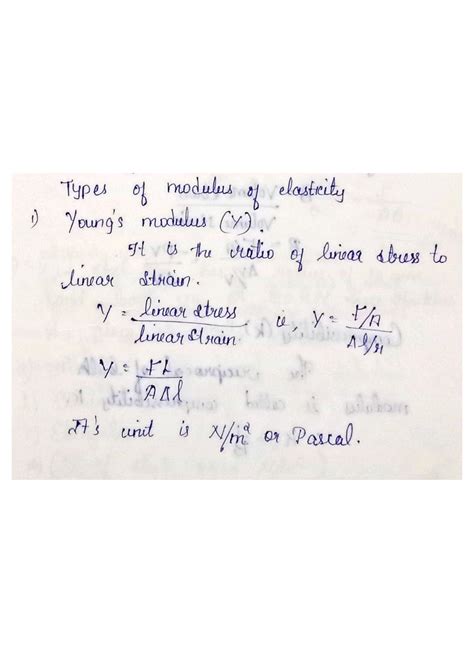 Types of modulus of elasticity
1) Young's modulus (Y).
It is the ratio of linear stress to
linear strain.
Y = linear stress / linear strain ie, Y = F/A / Δl/l
Y = FL / AΔl
It's unit is N/m² or Pascal.